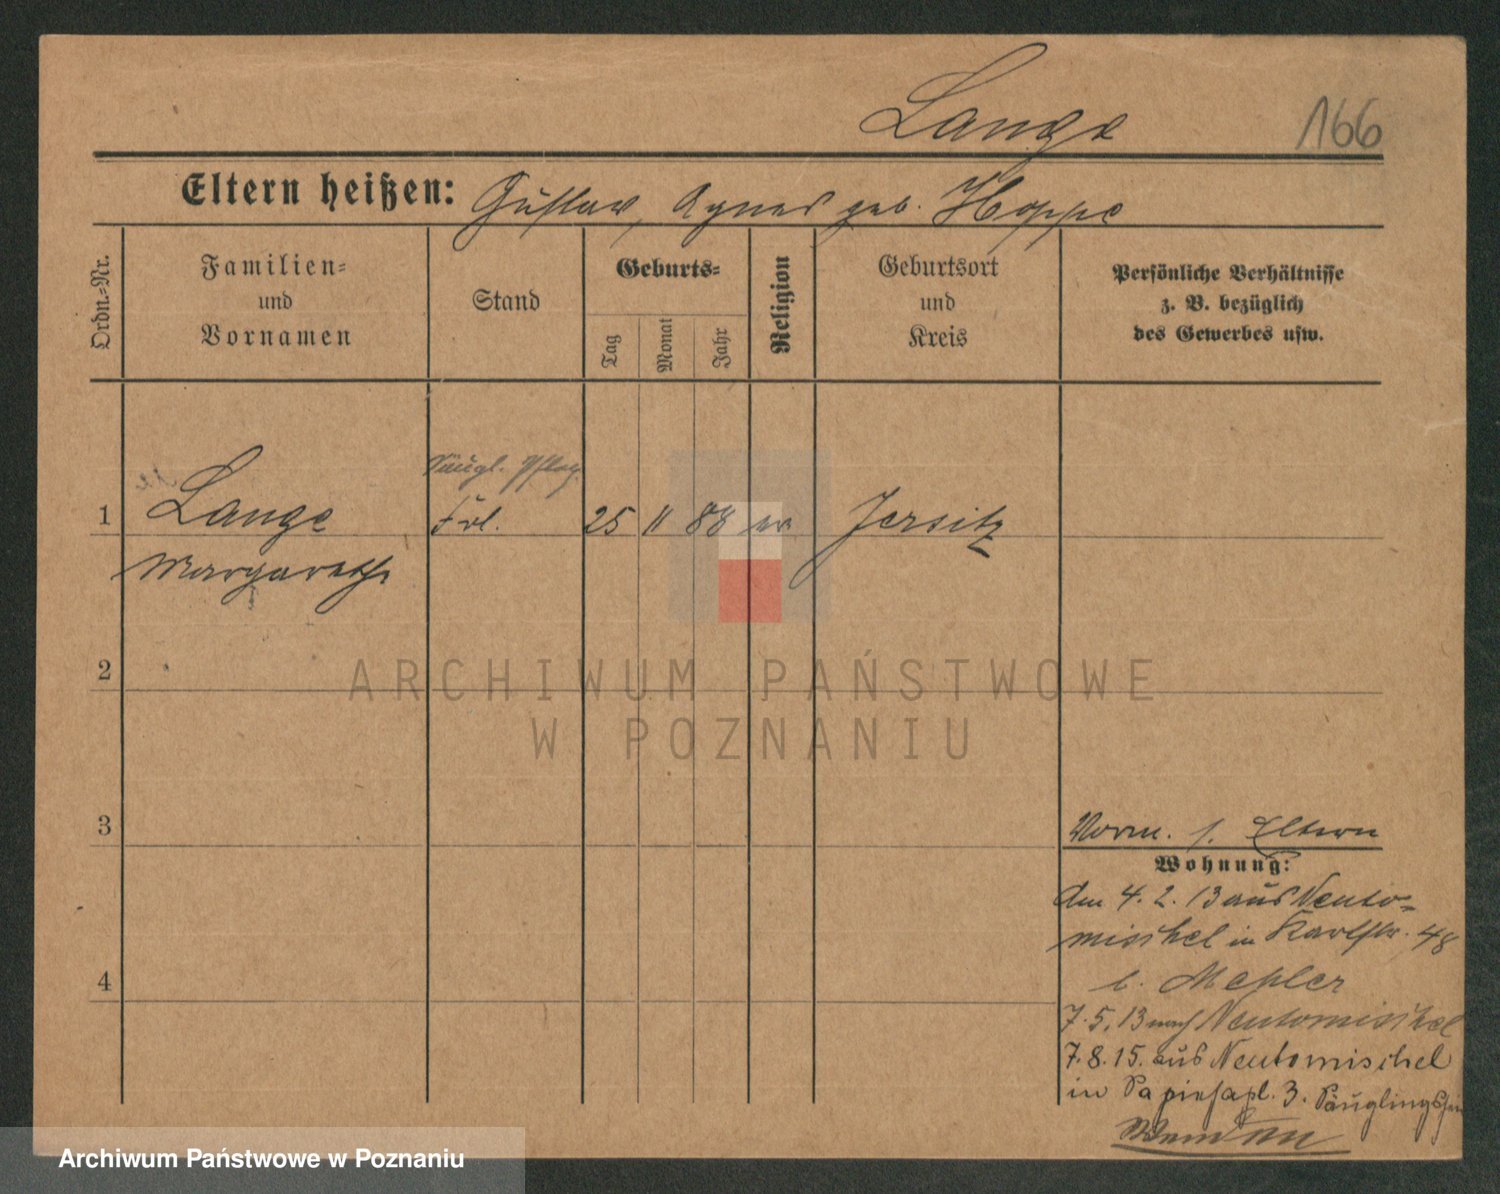 Lange
166
Eltern heißen: Gustav, Agnes geb. Hoppe
Ordn.-Nr.
Familien-
und
Vornamen
Stand
Geburts-
Tag
Monat
Jahr
Religion
Geburtsort
und
Kreis
Persönliche Verhältnisse
z. B. bezüglich
des Gewerbes usw.
Säugl. Pfleg.
1 Lange Frl. 25 11 88 ev Jersitz
Margareth
ARCHIWUM PAŃSTWOWE
W POZNANIU
2
3
Vorm. s. Eltern
Wohnung:
Am 4. 2. 13 aus Neuto-
mischel in Karlstr. 48
4
b. Mepler
7. 5. 13 nach Neutomischel
7. 8. 15. aus Neutomischel
in 3. Säuglingsheim
Archiwum Państwowe w Poznaniu